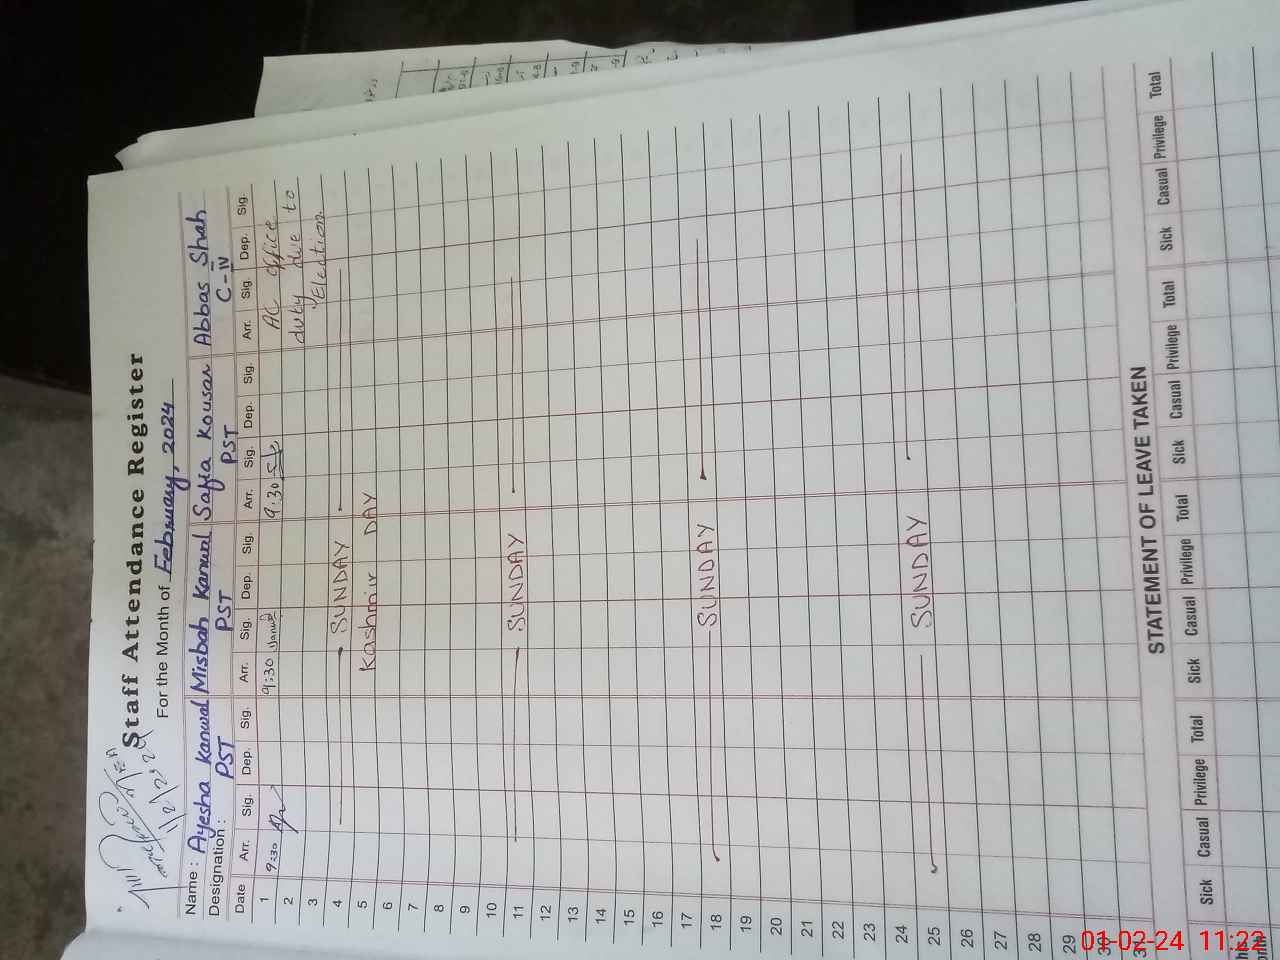 1/2/2024
Staff Attendance Register
For the Month of February, 2024
Name : Ayesha Kanwal Misbah Kanwal Safia Kousar Abbas Shah
Designation : PST PST PST C-IV
Date Arr. Sig. Dep. Sig. Arr. Sig. Dep. Sig. Arr. Sig. Dep. Sig. Arr. Sig. Dep. Sig.
1 9:30 9:30 9:30 AC office
2 duty due to
3 Election
4 SUNDAY
5 Kashmir DAY
6
7
8
9
10
11 SUNDAY
12
13
14
15
16
17
18 SUNDAY
19
20
21
22
23
24
25 SUNDAY
26
27
28
29
30
31
STATEMENT OF LEAVE TAKEN
Sick Casual Privilege Total Sick Casual Privilege Total Sick Casual Privilege Total Sick Casual Privilege Total
01-02-24 11:22